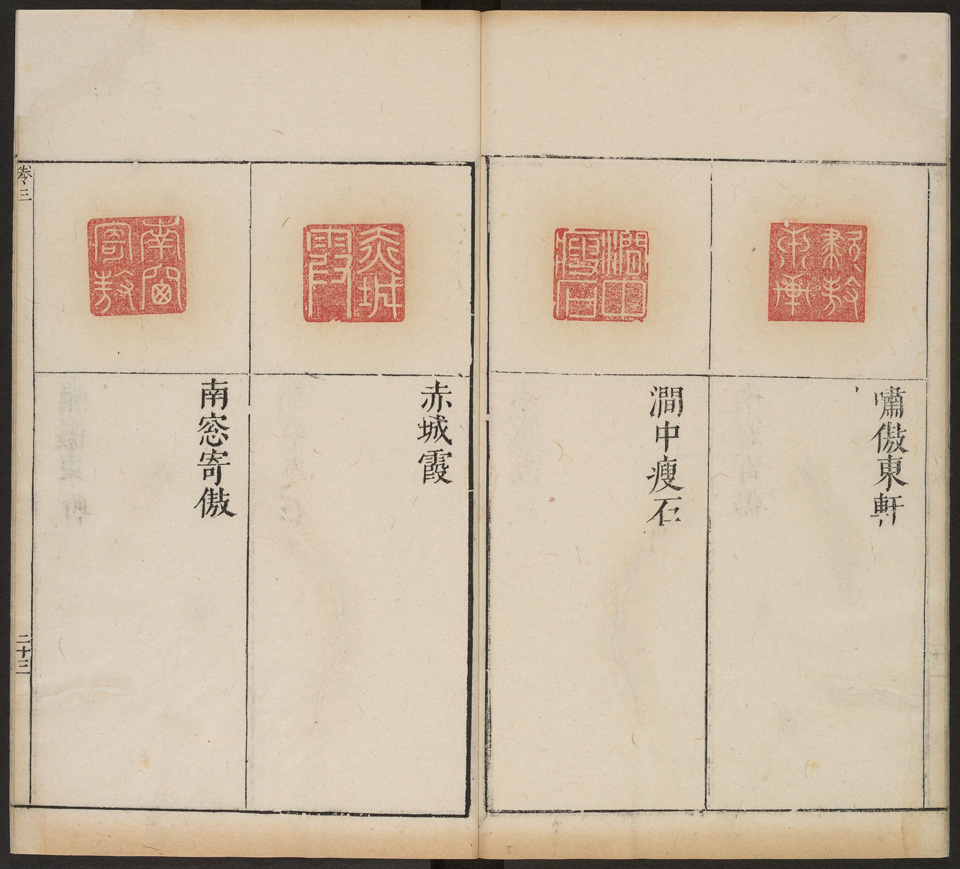 嘯傲東軒
澗中瘦石
赤城霞
南窓寄傲
卷三
二十三